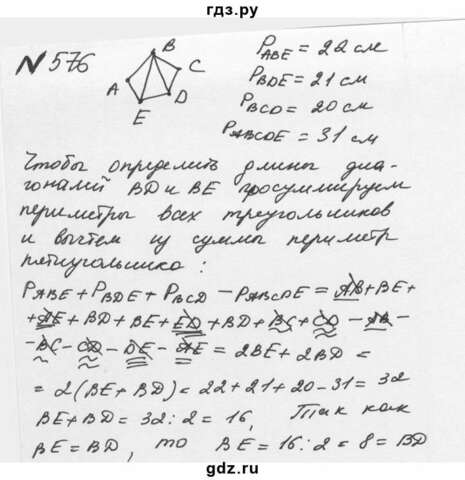 гдз.ру
№ 576
B
C
A
D
E
P_ABE = 22 см
P_BDE = 21 см
P_BCD = 20 см
P_ABCDE = 31 см
Чтобы определить длины диа-
гоналий BD и BE просуммируем
периметры всех треугольников
и вычтем из суммы периметр
пятиугольника :
P_ABE + P_BDE + P_BCD - P_ABCDE = AB + BE +
+ AE + BD + BE + ED + BD + BC + CD - AB -
- BC - CD - DE - AE = 2BE + 2BD =
= 2(BE + BD) = 22 + 21 + 20 - 31 = 32
BE + BD = 32 : 2 = 16, Так как
BE = BD, то BE = 16 : 2 = 8 = BD
гдз.ру